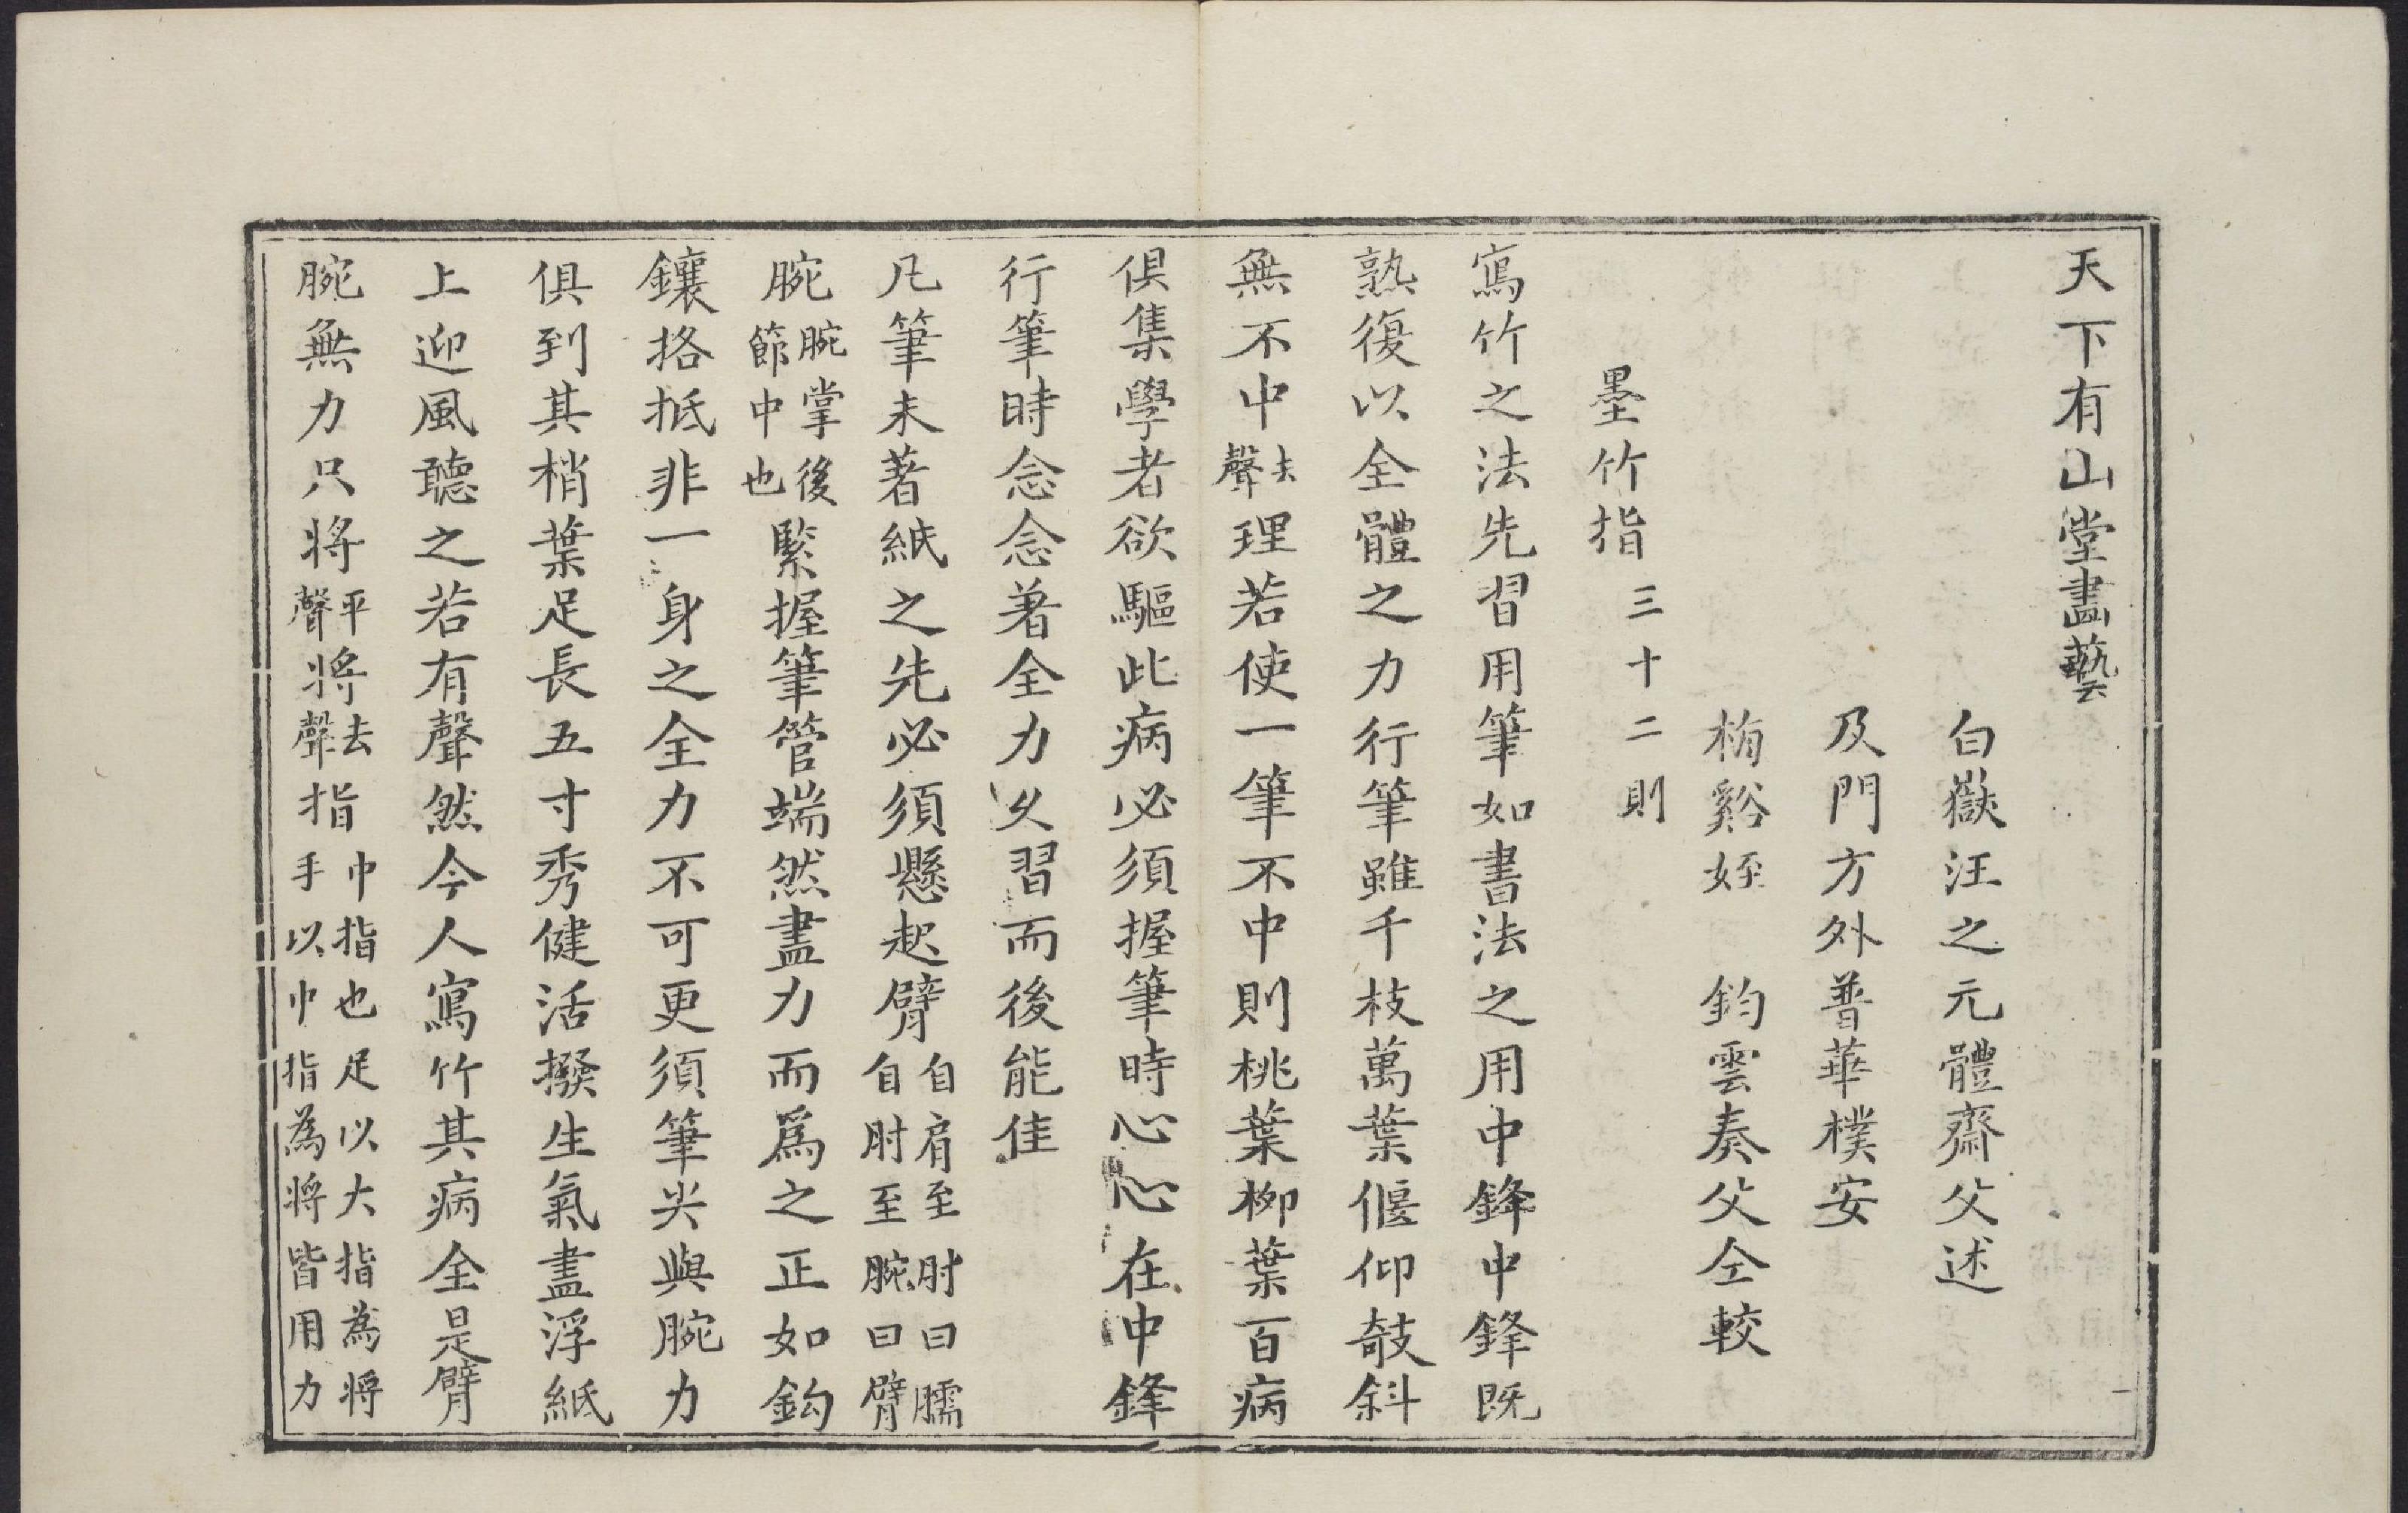 天下有山堂畫藝
白嶽汪之元體齋父述
及門方外普華樸安
梅谿姪　鈞雲奏父仝較
墨竹指三十二則
寫竹之法先習用筆如書法之用中鋒中鋒既
熟復以全體之力行筆雖千枝萬葉偃仰攲斜
無不中去聲理若使一筆不中則桃葉柳葉百病
俱集學者欲驅此病必須握筆時心心在中鋒
行筆時念念著全力久習而後能佳
凡筆未著紙之先必須懸起臂自肩至肘曰臑自肘至腕曰臂
腕腕掌後節中也緊握筆管端然盡力而爲之正如鈎
鑲挌抵非一身之全力不可更須筆尖與腕力
俱到其梢葉足長五寸秀健活撥生氣盡浮紙
上迎風聽之若有聲然今人寫竹其病全是臂
腕無力只將平聲將去聲指巾指也足以大指為將手以巾指為將皆用力